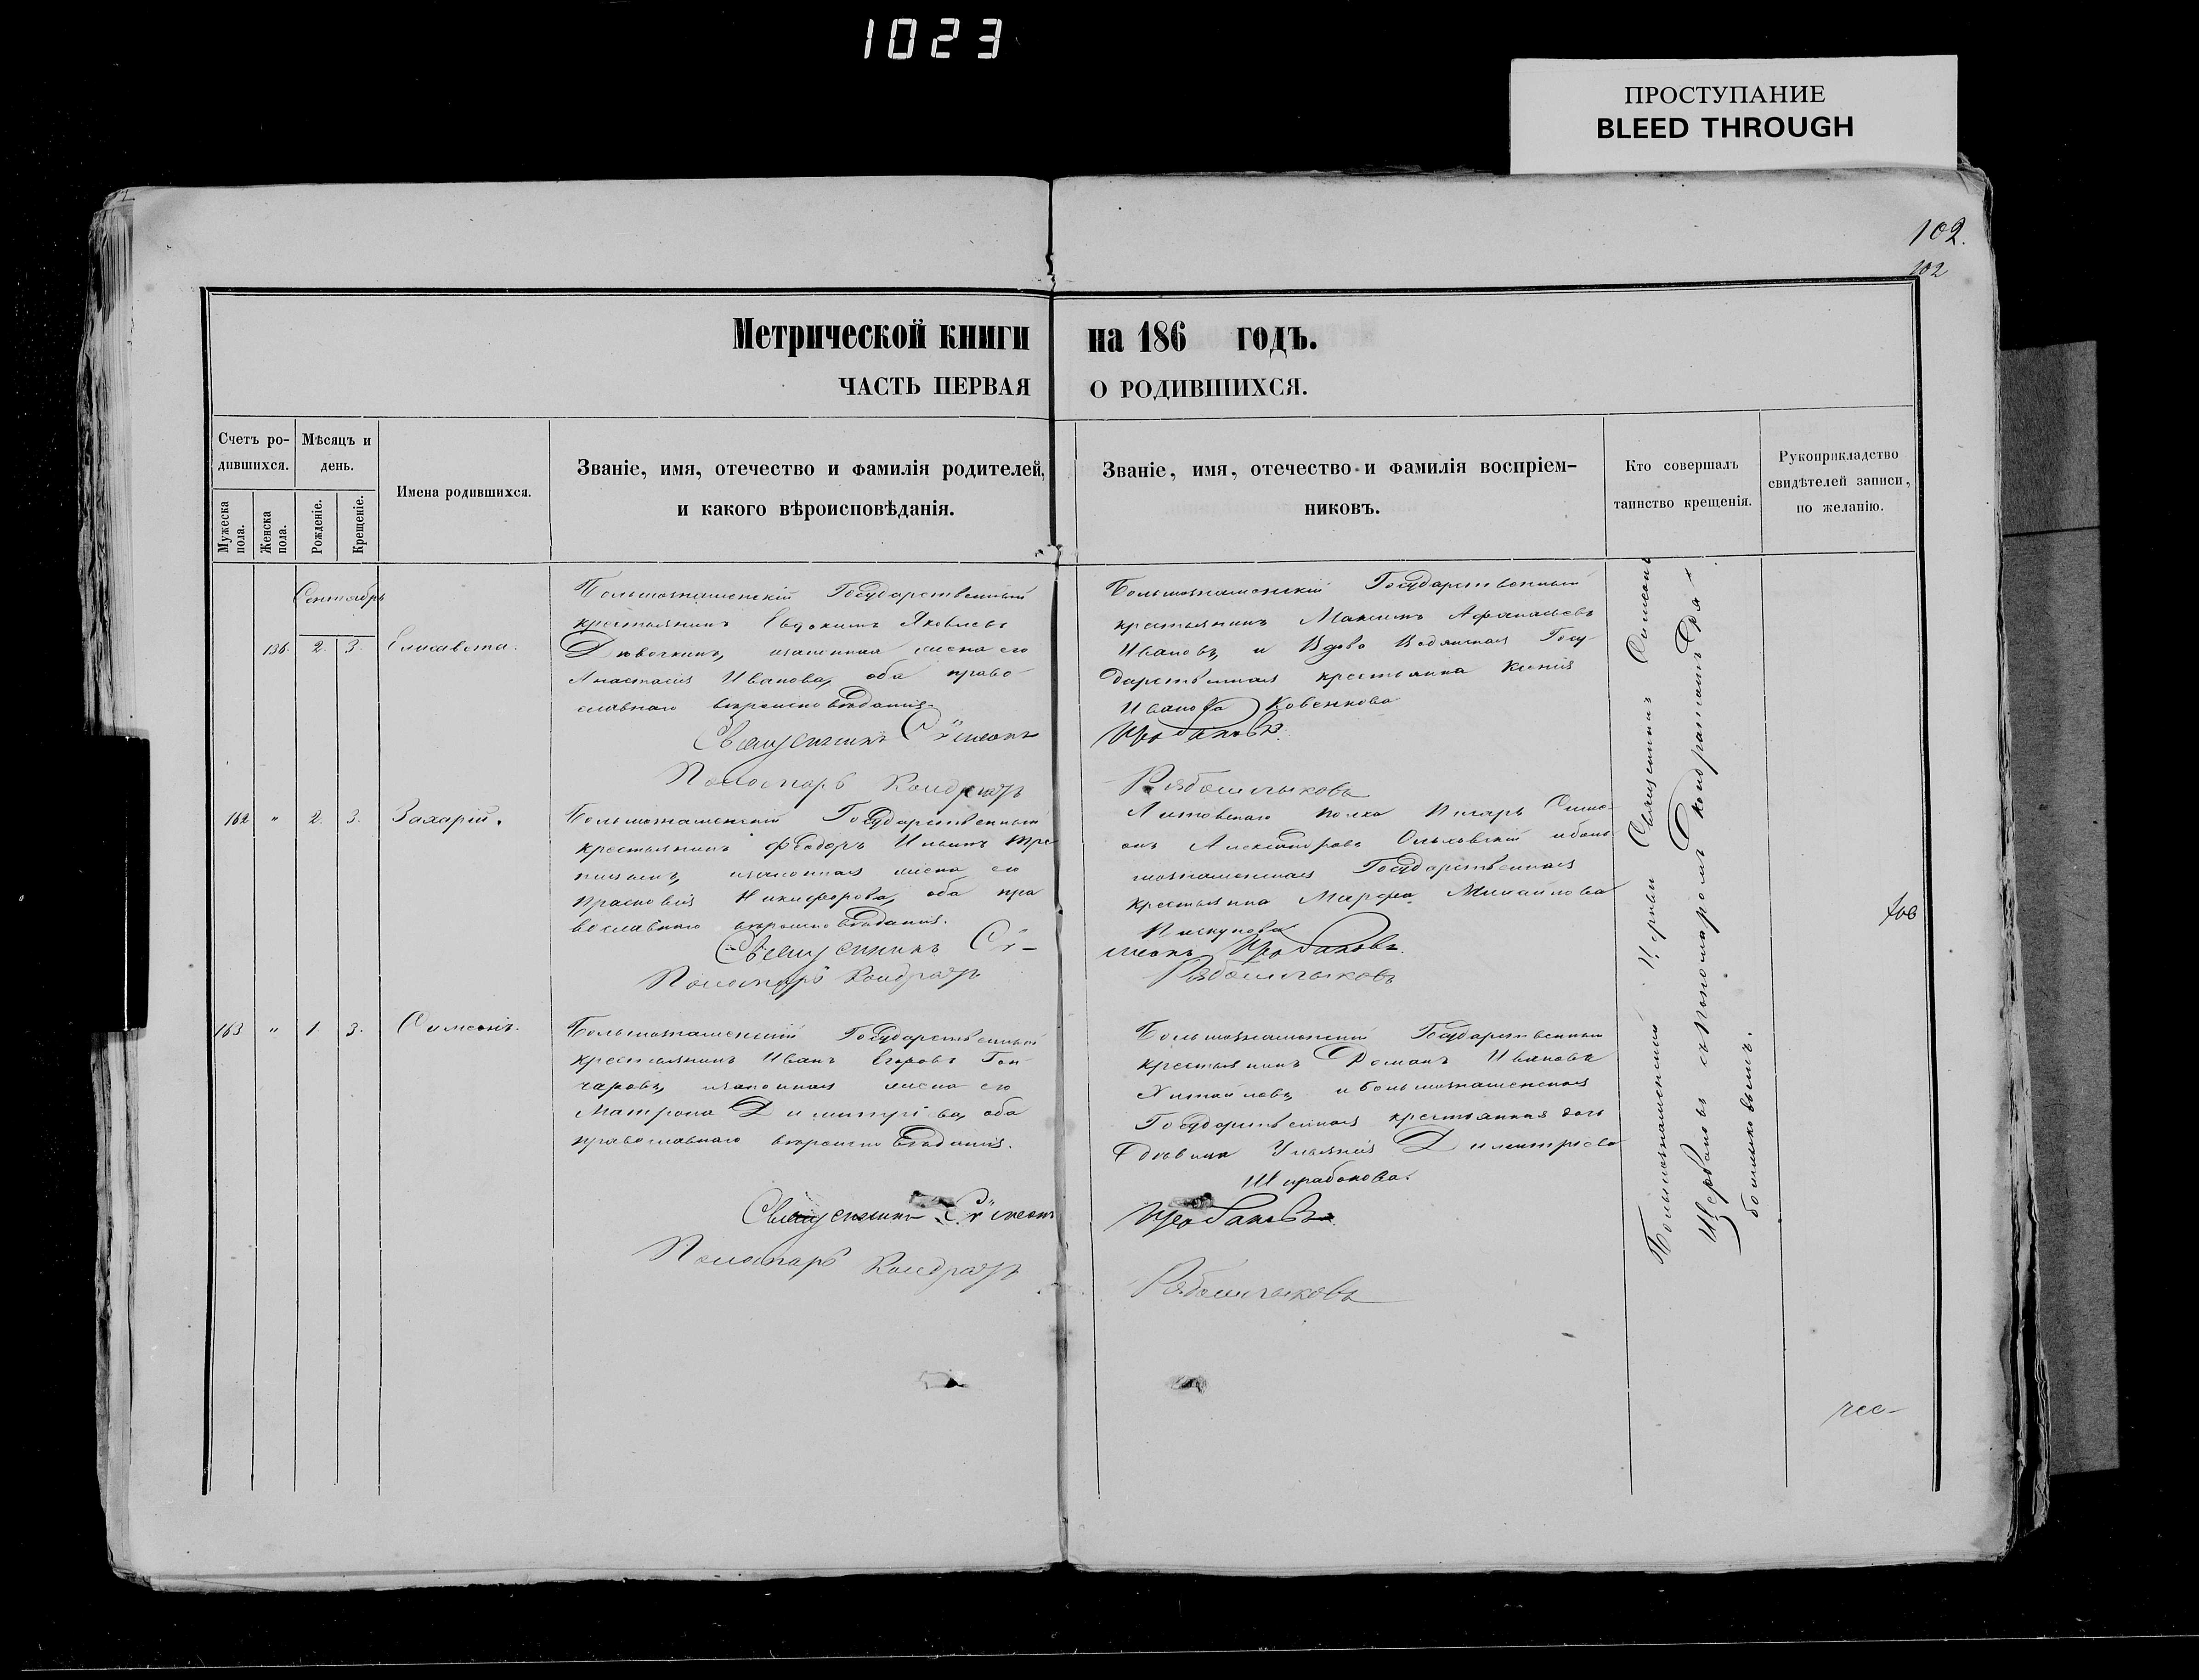 1023
ПРОСТУПАНИЕ
BLEED THROUGH
102.
102
Метрической книги на 186 годъ.
ЧАСТЬ ПЕРВАЯ О РОДИВШИХСЯ.
Счетъ ро-
дившихся.
Мужеска
пола.
Женска
пола.
Мѣсяцъ и
день.
Рожденіе.
Крещеніе.
Имена родившихся.
Званіе, имя, отечество и фамилія родителей,
и какого вѣроисповѣданія.
Званіе, имя, отечество и фамилія воспріем-
никовъ.
Кто совершалъ
таинство крещенія.
Рукоприкладство
свидѣтелей записи,
по желанію.
Сентябрь
136. 2. 3. Елисавета.
Большознаменскій Государственный
крестьянинъ Евдокимъ Яковлевъ
законная жена его
Анастасия Иванова, оба право
славнаго вѣроисповѣданія.
Священникъ Сѵмеонъ
Пономарь Кондратъ
Большознаменскій Государственный
крестьянинъ Максимъ Афанасьевъ
Ивановъ, и Вдова Водянская Госу-
дарственная крестьянка Ксенія
Иванова Ковенкова
Щербановъ.
Рябошлыковъ
162 " 2. 3. Захарій.
Большознаменскій Государственный
крестьянинъ Феодоръ Ильинъ
законная жена его
Прасковія Никифорова, оба пра
вославнаго вѣроисповѣданія.
Священникъ Сѵ-
Пономарь Кондратъ
Литовскаго полка Писарь Симе-
онъ Александровъ Ольховскій и боль
шознаменская Государственная
крестьянка Марфа Михайлова
Пискунова
меонъ Щербановъ.
Рябошлыковъ
163 " 1. 3. Симеонъ.
Большознаменскій Государственный
крестьянинъ Иванъ Егоровъ Гон
чаровъ, законная жена его
Матрона Димитріева, оба
православнаго вѣроисповѣданія.
Священникъ Сѵмеонъ
Пономарь Кондратъ
Большознаменскій Государственный
крестьянинъ Романъ Ивановъ
и большознаменская
Государственная крестьянская дочь
Дѣвица Ульянія Димитріева
Щербановъ
Рябошлыковъ
Большознаменской Церкви Священникъ Симеонъ
Щербановъ съ Пономаремъ Кондратомъ Ря
бошлыковымъ.